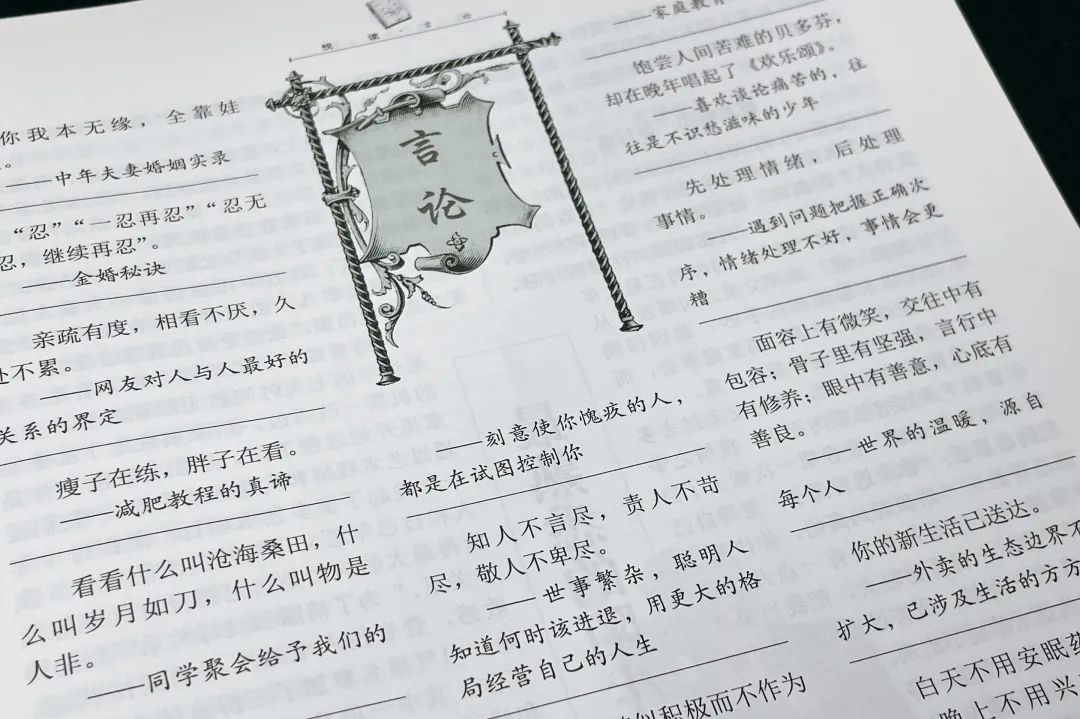 悦读言论
言
论
你我本无缘，全靠娃
。
——中年夫妻婚姻实录
“忍”“一忍再忍”“忍无
忍，继续再忍”。
——金婚秘诀
亲疏有度，相看不厌，久
处不累。
——网友对人与人最好的
关系的界定
瘦子在练，胖子在看。
——减肥教程的真谛
看看什么叫沧海桑田，什
么叫岁月如刀，什么叫物是
人非。
——同学聚会给予我们的
——刻意使你愧疚的人，
都是在试图控制你
知人不言尽，责人不苛
尽，敬人不卑尽。
——世事繁杂，聪明人
知道何时该进退，用更大的格
局经营自己的人生
似积极而不作为
——家庭教育
饱尝人间苦难的贝多芬，
却在晚年唱起了《欢乐颂》。
——喜欢谈论痛苦的，往
往是不识愁滋味的少年
先处理情绪，后处理
事情。
——遇到问题把握正确次
序，情绪处理不好，事情会更
糟
面容上有微笑，交往中有
包容；骨子里有坚强，言行中
有修养；眼中有善意，心底有
善良。
——世界的温暖，源自
每个人
你的新生活已送达。
——外卖的生态边界不
扩大，已涉及生活的方方
白天不用安眠
晚上不用兴